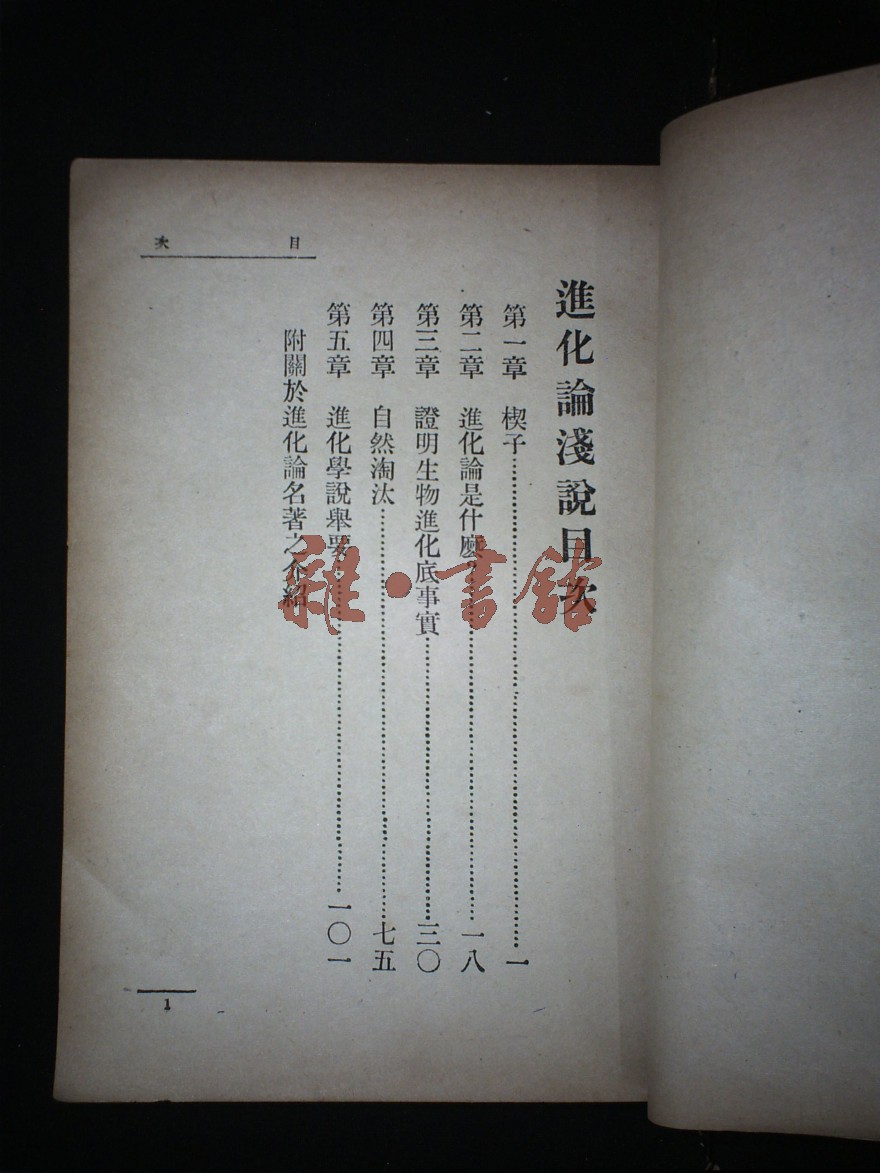 目次
進化論淺說目次
第一章 楔子……一
第二章 進化論是什麼？……一八
第三章 證明生物進化底事實……三〇
第四章 自然淘汰……七五
第五章 進化學說舉要……一〇一
附關於進化論名著之介紹
1
雜·書館